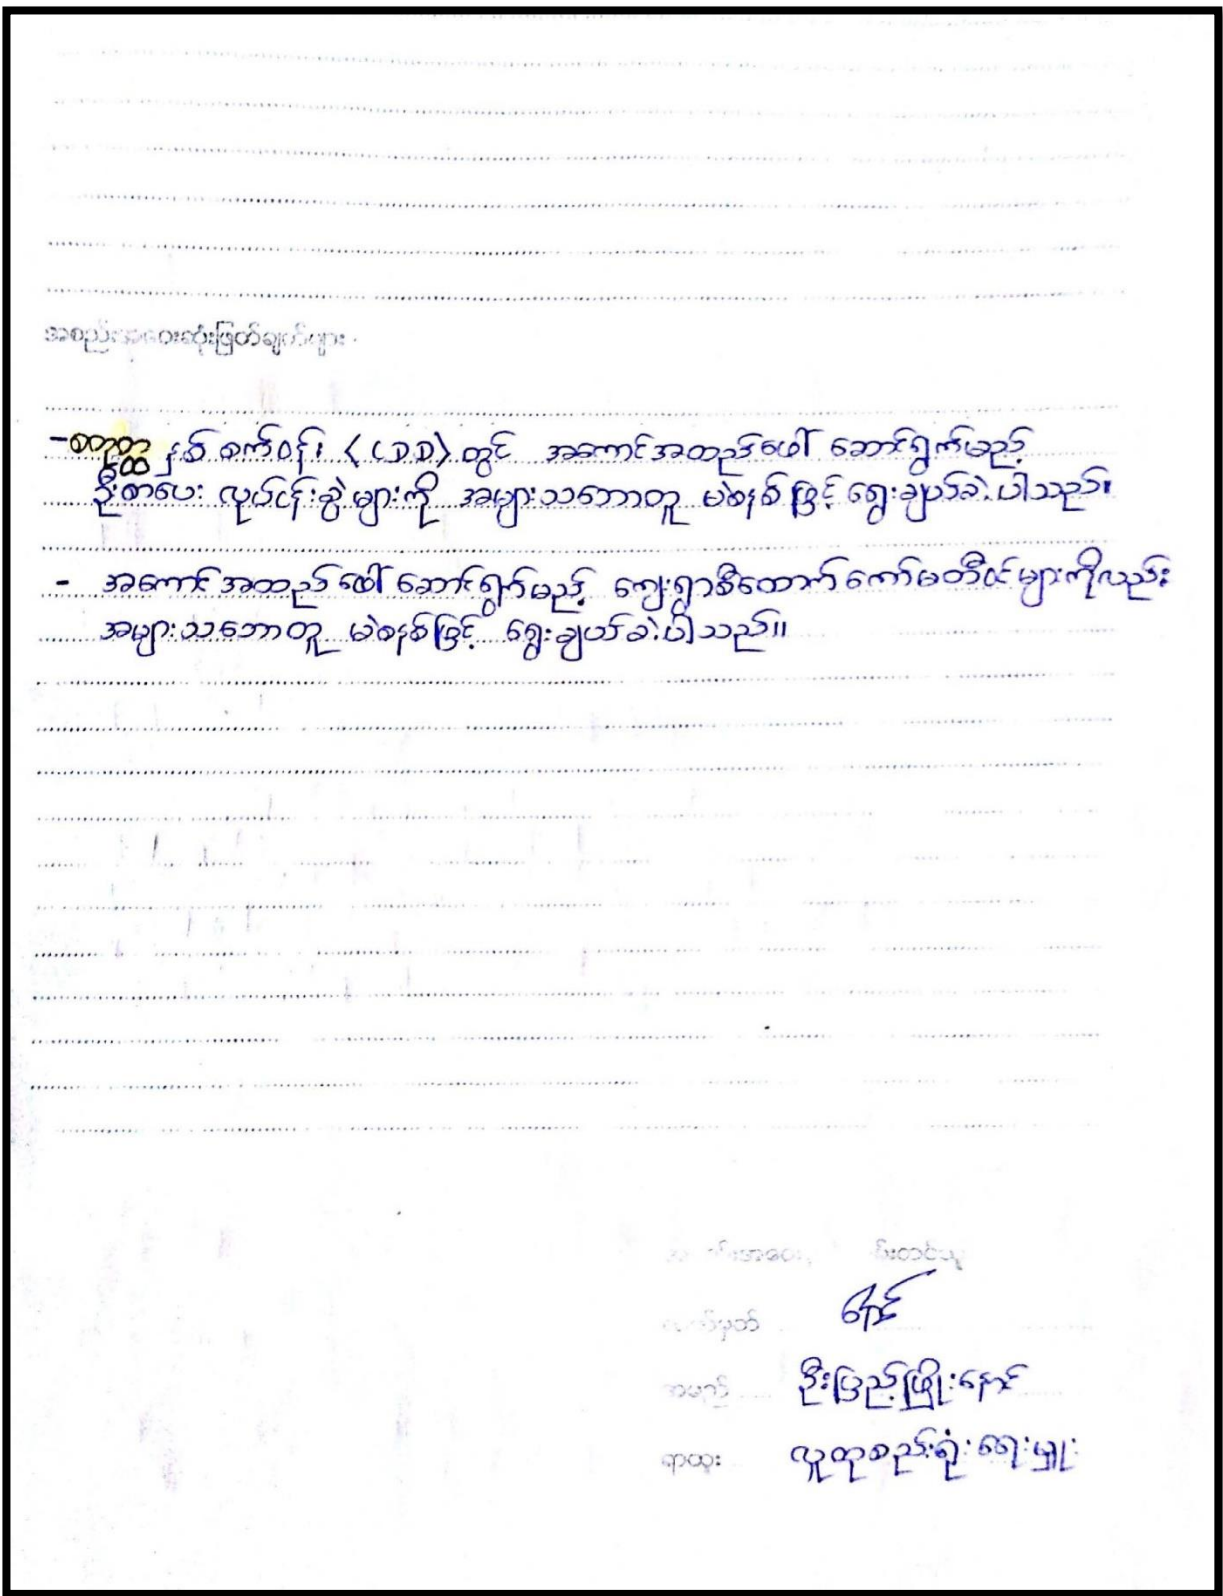 အစည်းအဝေးဆုံးဖြတ်ချက်များ
- စတုတ္ထ နှစ် စက်ဝန်း (CDD) တွင် အကောင်အထည်ဖေါ် ဆောင်ရွက်မည့်
ဦးစားပေး လုပ်ငန်းခွဲ များကို အများသဘောတူ မဲစနစ်ဖြင့် ရွေးချယ်ခဲ့ပါသည်။
- အကောင်အထည်ဖေါ် ဆောင်ရွက်မည့် ကျေးရွာစီထောက်ကော်မတီဝင်များကိုလည်း
အများသဘောတူ မဲစနစ်ဖြင့် ရွေးချယ်ခဲ့ပါသည်။
လက်မှတ်
အမည် ဦးပြည့်ဖြိုးနောင်
ရာထူး လူထုစည်းရုံးရေးမှူး